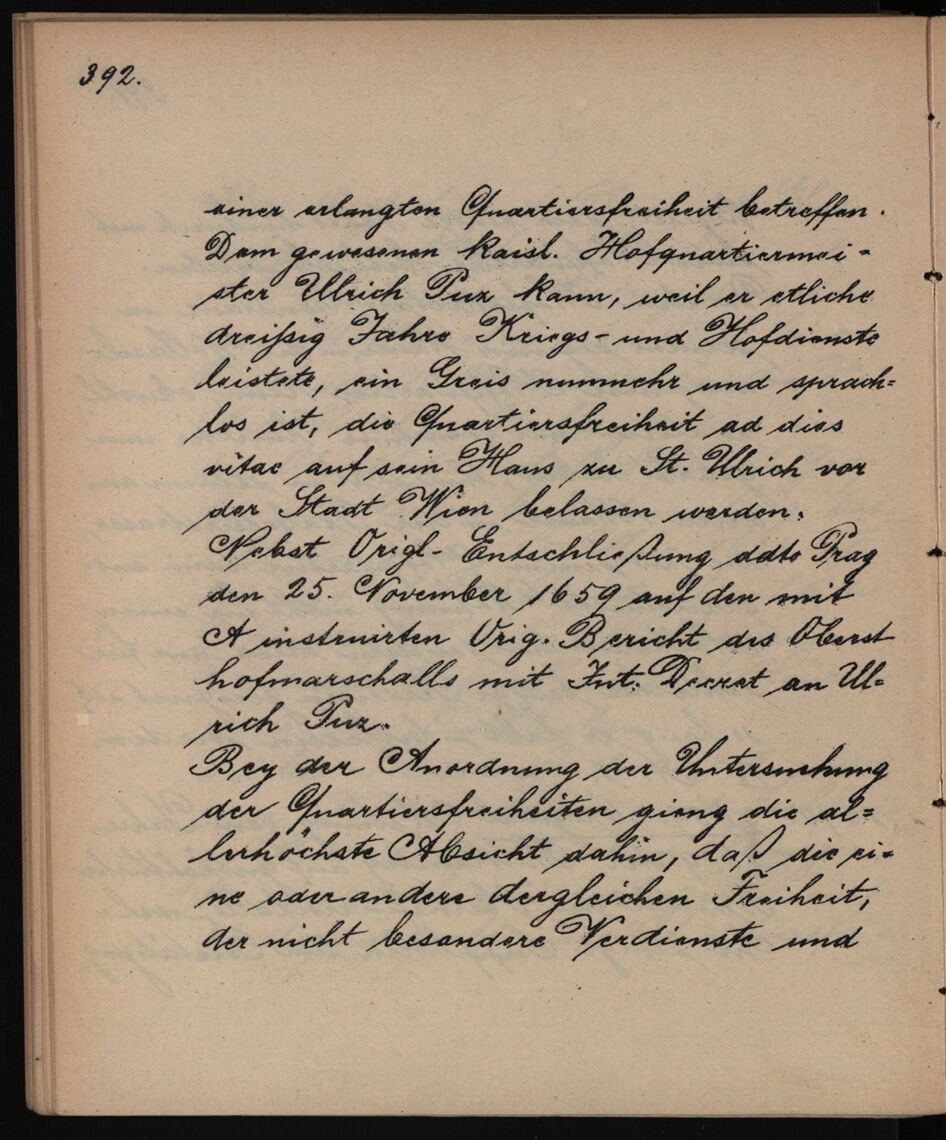 392.
einer erlangten Quartiersfreiheit betreffen.
Dem gewesenen Kaisl. Hofquartiermei=
ster Ulrich Puz kann, weil er etliche
dreißig Jahre Kriegs- und Hofdienste
leistete, ein Greis nunmehr und sprach=
los ist, die Quartiersfreiheit ad dies
vitae auf sein Haus zu St. Ulrich vor
der Stadt Wien belassen werden.
Nebst Origl- Entschließung ddto Prag
den 25. November 1659 auf den mit
A instruirten Orig. Bericht des Oberst
hofmarschalls mit Int. Decret an Ul=
rich Puz.
Bey der Anordnung der Untersuchung
der Quartiersfreiheiten gieng die al=
lerhöchste Absicht dahin, daß die ei=
ne oder andere dergleichen Freiheit,
der nicht besondere Verdienste und